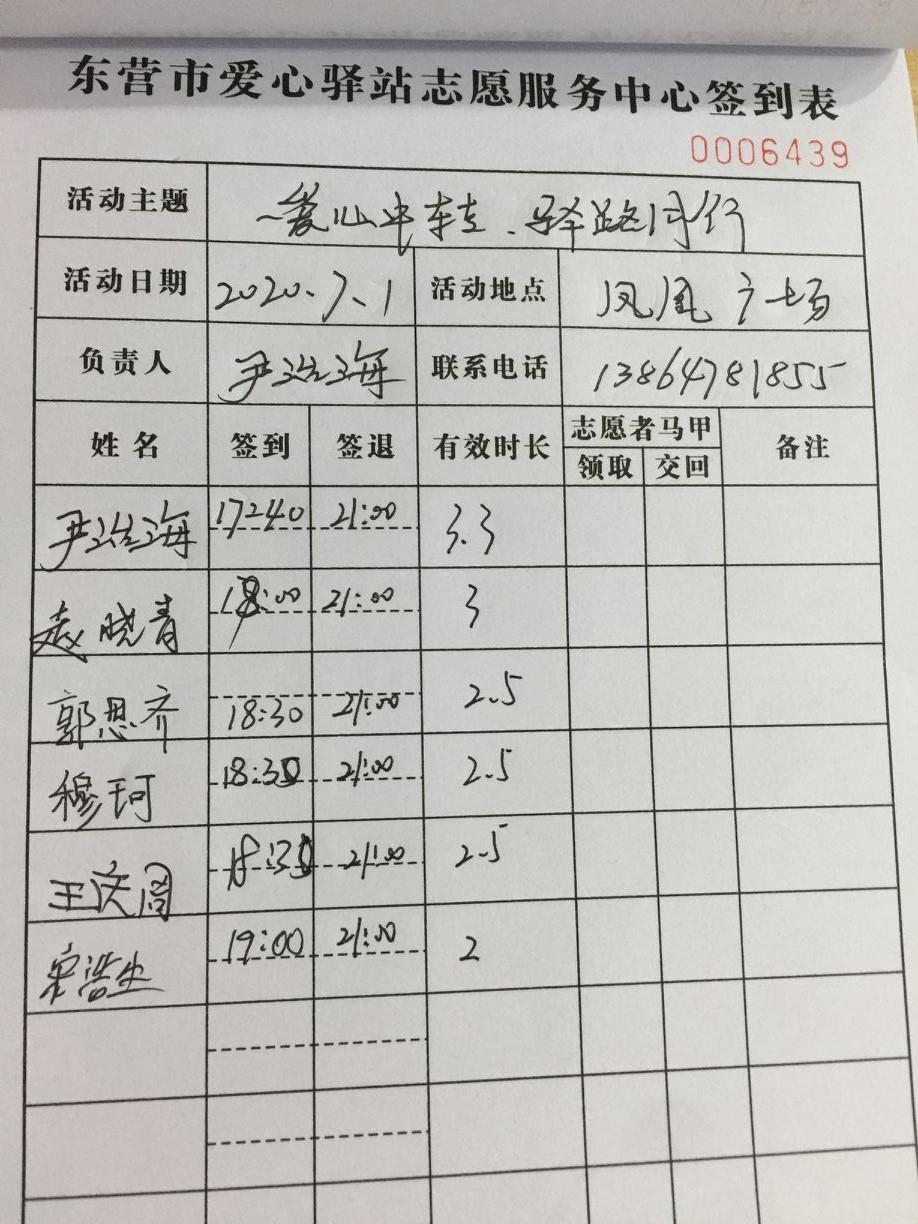 东营市爱心驿站志愿服务中心签到表
0006439
活动主题 爱心中转、驿路同行
活动日期 2020.7.1 活动地点 凤凰广场
负责人 尹治海 联系电话 13864781855
姓名 签到 签退 有效时长 志愿者马甲 领取 交回 备注
尹治海 17:40 21:00 3.3
赵晓青 18:00 21:00 3
郭思齐 18:30 21:00 2.5
穆珂 18:30 21:00 2.5
王庆周 18:30 21:00 2.5
宋浩生 19:00 21:00 2